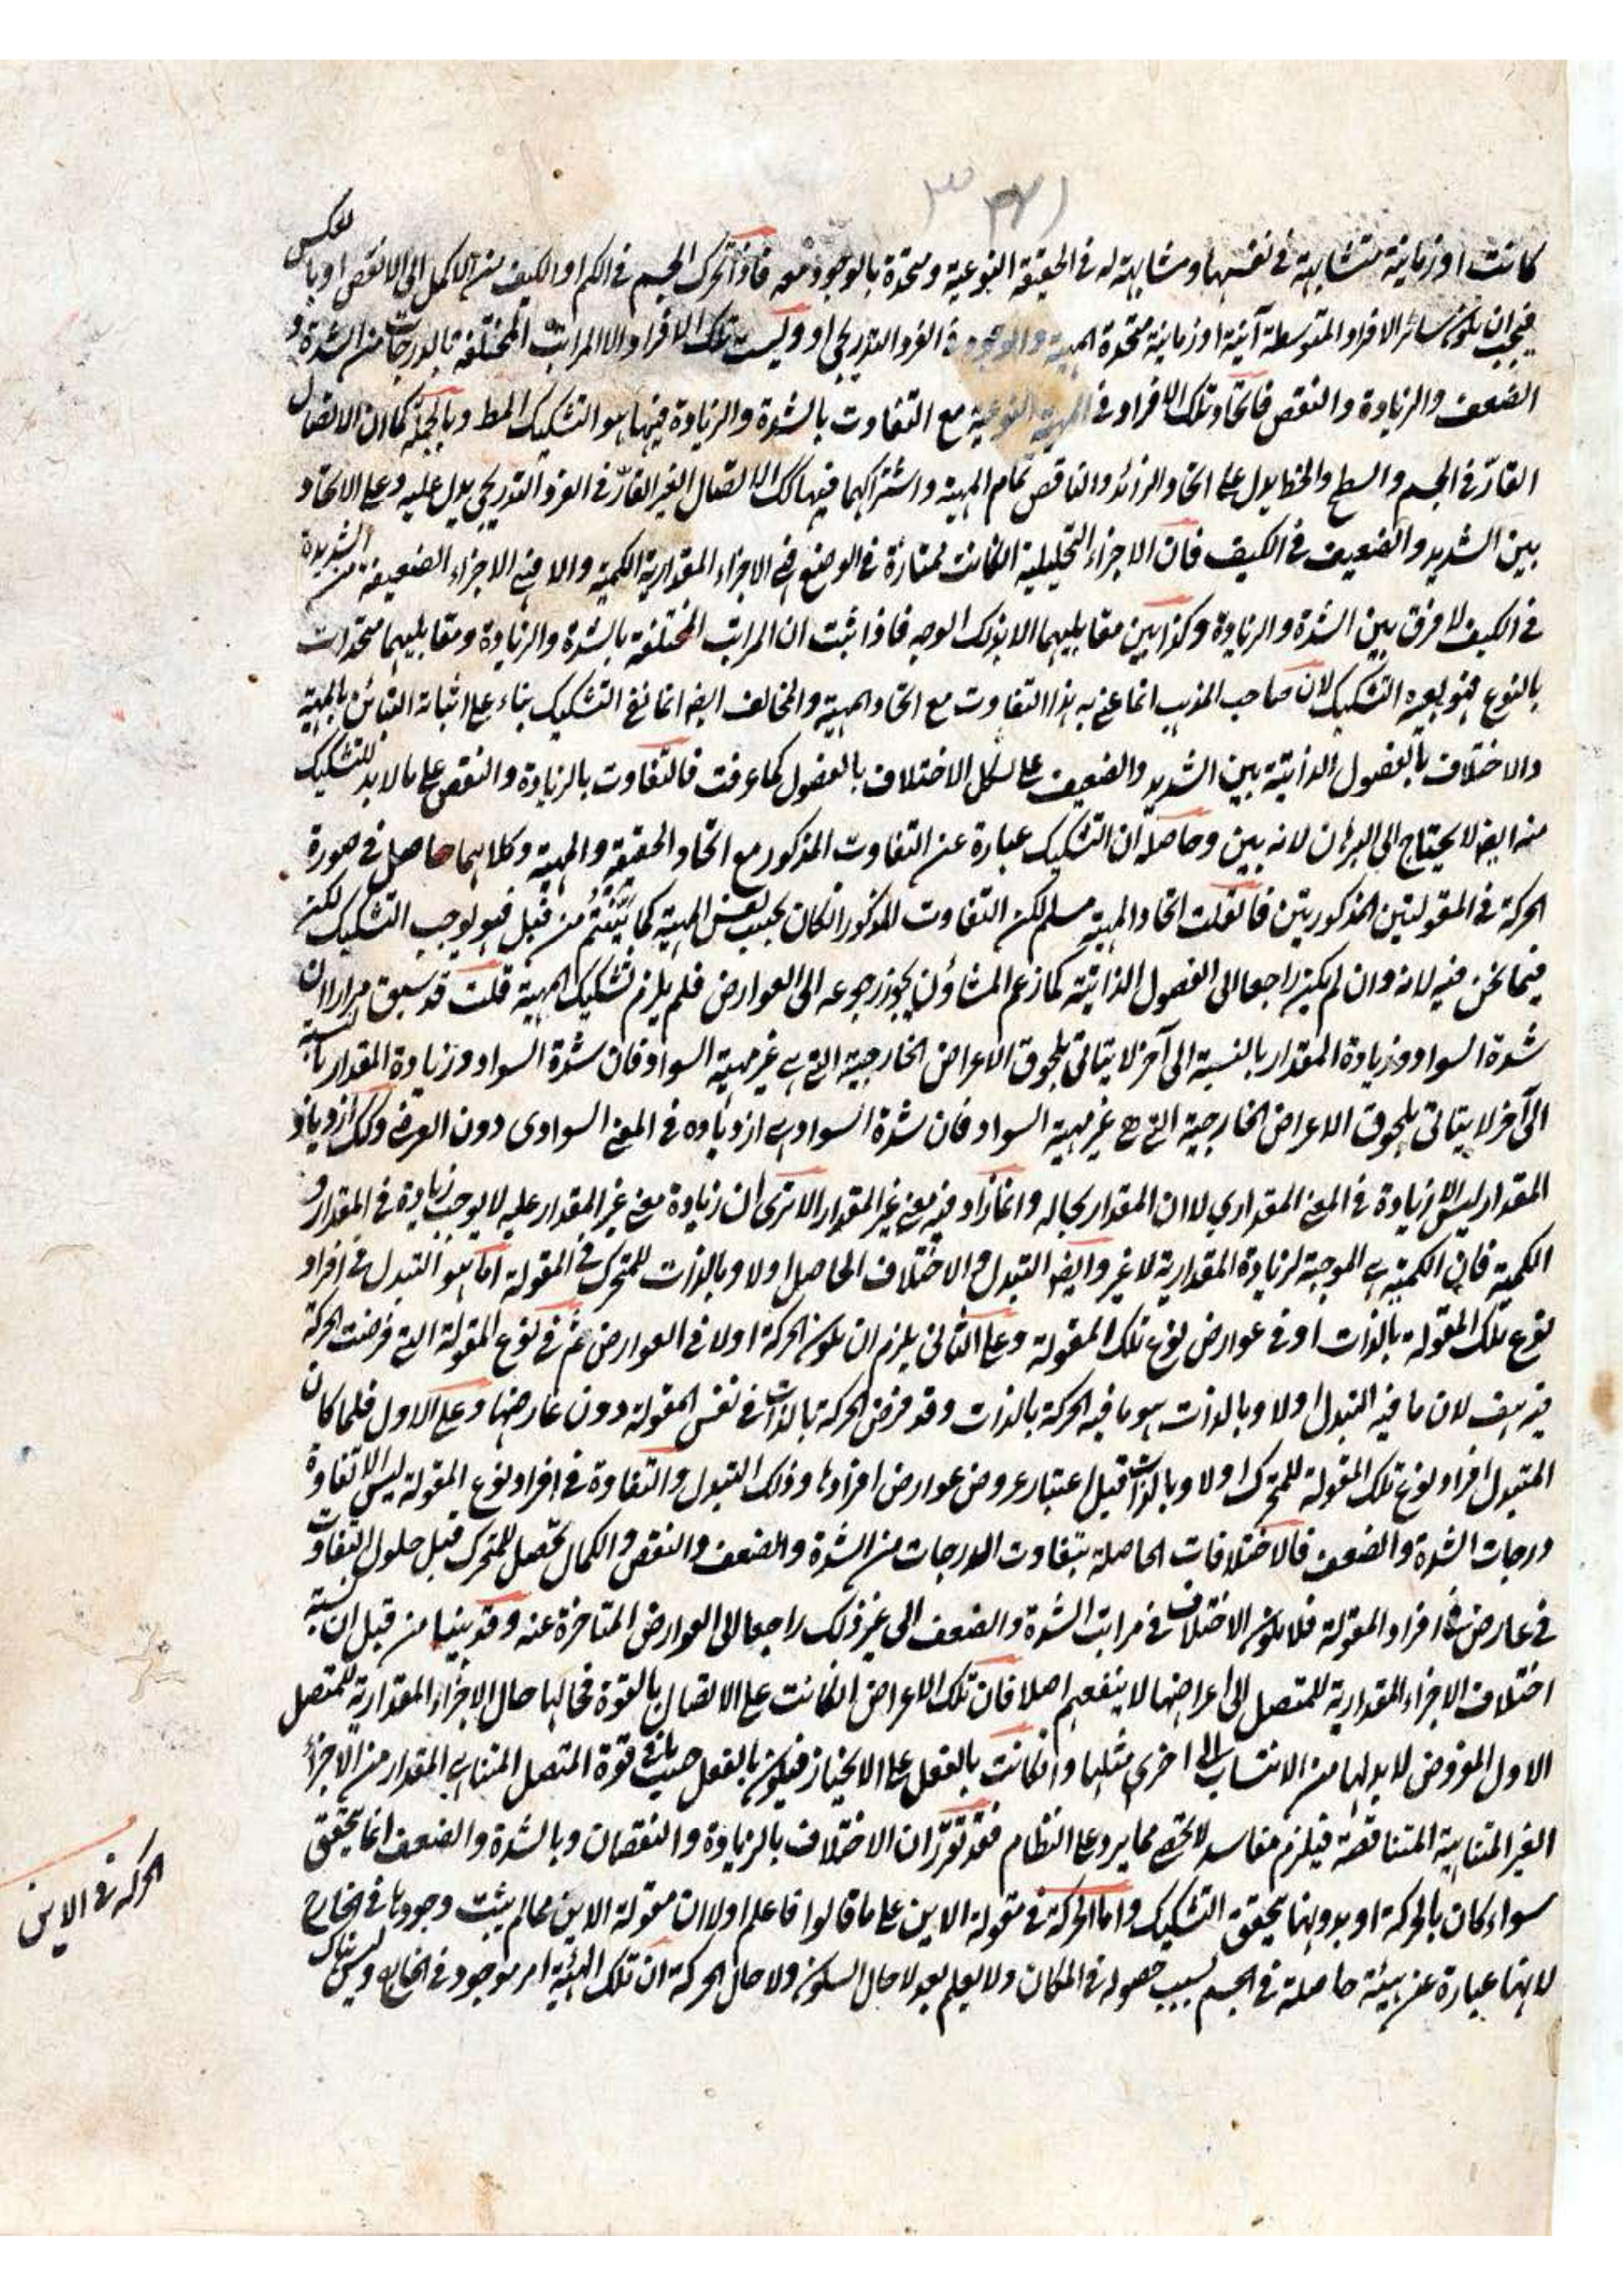 كانت او زمانية متشابهة في نفسها ومشابهة له في الحقيقة النوعية ومتحدة بالوجود معه فاذا تحرك الجسم في الكم او الكيف من الاكمل الى الانقص او بالعكس
فيجب ان يكون سائر الافراد المتوسطة آنية او زمانية متحدة المهية والوجود الفرد التدريجي او وليست تلك الافراد الا المراتب المختلفة بالدرجات من الشدة و
الضعف والزيادة والنقص فاتحاد تلك الافراد في المهية النوعية مع التفاوت بالشدة والزيادة فيها هو التشكيك المط وبالجملة كما ان الاتصال
القارّ في الجسم والسطح والخط يدل على اتحاد الزائد والناقص تمام المهية واشتراكهما فيها كك الاتصال الغير القارّ في الفرد التدريجي يدل عليه وعلى الاتحاد
بين الشديد والضعيف في الكيف فان الاجزاء التحليلية انكانت ممتازة في الوضع فهي الاجزاء المقدارية الكمية والا فهي الاجزاء الضعيفة من الشديدة
في الكيف لا فرق بين الشدة والزيادة وكذا بين مقابليهما الا بذلك الوجه فاذا ثبت ان المراتب المختلفة بالشدة والزيادة ومقابليهما متحدات
بالنوع فهو بعينه التشكيك لان صاحب المذهب انما عنى به هذا التفاوت مع اتحاد المهية والمخالف ايضا انما نفى التشكيك بناء على اثباته التباين بالمهية
والاختلاف بالفصول الذاتية بين الشديد والضعيف على شكل الاختلاف بالفصول كما عرفت فالتفاوت بالزيادة والنقص على ما لابد للتشكيك
منه ايضا لا يحتاج الى البرهان لانه بين وحاصله ان التشكيك عبارة عن التفاوت المذكور مع اتحاد الحقيقة والمهية وكلاهما حاصل في صورة
الحركة في المقولتين المذكورتين فان قلت اتحاد المهية مسلم لكن التفاوت المذكور انكان بحسب نفس المهية كما بيّنتم من قبل فهو يوجب التشكيك لكن
فيما نحن فيه لانه وان لم يكن راجعا الى الفصول الذاتية كما زعم المشاؤن يجوز رجوعه الى العوارض فلم يلزم تشكيك المهية قلت قد سبق مرارا ان
شدة السواد وزيادة المقدار بالنسبة الى آخر لا يتاتى بلحوق الاعراض الخارجية التي هي غير مهية السواد فان شدة السواد وزيادة المقدار بالنسبة
الى آخر لا يتاتى بلحوق الاعراض الخارجية التي هي غير مهية السواد فان شدة السواد هي ازدياده في المعنى السوادى دون العرضي وكك ازدياد
المقدار ليس الا زيادة في المعنى المقداري لا ان المقدار بحاله وانما زاد فيه معنى غير المقدار الا ترى ان زيادة معنى غير المقدار عليه لا يوجب زيادة في المقدار و
الكمية فان الكمية هي الموجبة لزيادة المقدارية لا غير وايضا التبدل والاختلاف الحاصل اولا وبالذات للمتحرك في المقولة اما هو التبدل في افراد
نوع تلك المقولة بالذات او في عوارض نوع تلك المقولة وعلى الثاني يلزم ان يكون الحركة اولا في العوارض ثم في نوع المقولة التي فرضت الحركة
فيه هف لان ما فيه التبدل اولا وبالذات هو ما فيه الحركة بالذات وقد فرض الحركة بالذات في نفس المقولة دون عارضها وعلى الاول فلما كان
المتبدل افراد نوع تلك المقولة للمتحرك اولا وبالذات قبل اعتبار عروض عوارض افرادها وذلك التبدل والتفاوت في افراد نوع المقولة ليس الا تفاوة
درجات الشدة والضعف فالاختلافات الحاصلة بتفاوت الدرجات من الشدة والضعف والنقص والكمال يحصل للمتحرك قبل حلول التفاوت
في عارض في افراد المقولة فلا يكون الاختلاف في مراتب الشدة والضعف الى غير ذلك راجعا الى العوارض المتاخرة عنه وقد بينا من قبل ان نسبة
اختلاف الاجزاء المقدارية للمتصل الى اعراضها لا ينفعهم اصلا فان تلك الاعراض انكانت على الاتصال بالقوة فحالها حال الاجزاء المقدارية للمتصل
الاول المفروض لابد لها من الانتساب الى اخرى مثلها وانكانت بالفعل على الانحياز فيكون بالفعل حسب ما في قوة المتصل المتناهي المقدار من الاجزاء
الغير المتناهية المتناقصة فيلزم مفاسد لا تحصى مما يرد على النظام فقد تقرّر ان الاختلاف بالزيادة والنقصان وبالشدة والضعف انما يتحقق
سواء كان بالحركة او بدونها يتحقق التشكيك واما الحركة في مقولة الاين على ما قالوا فاعلم اولا ان مقولة الاين مما لم يثبت وجودها في الخارج
لانها عبارة عن هيئة حاصلة في الجسم بسبب حصوله في المكان ولا يعلم بعد لا حال السكون ولا حال الحركة ان تلك الهيئة امر موجود في الخارج وليس هناك
الحركة في الاين